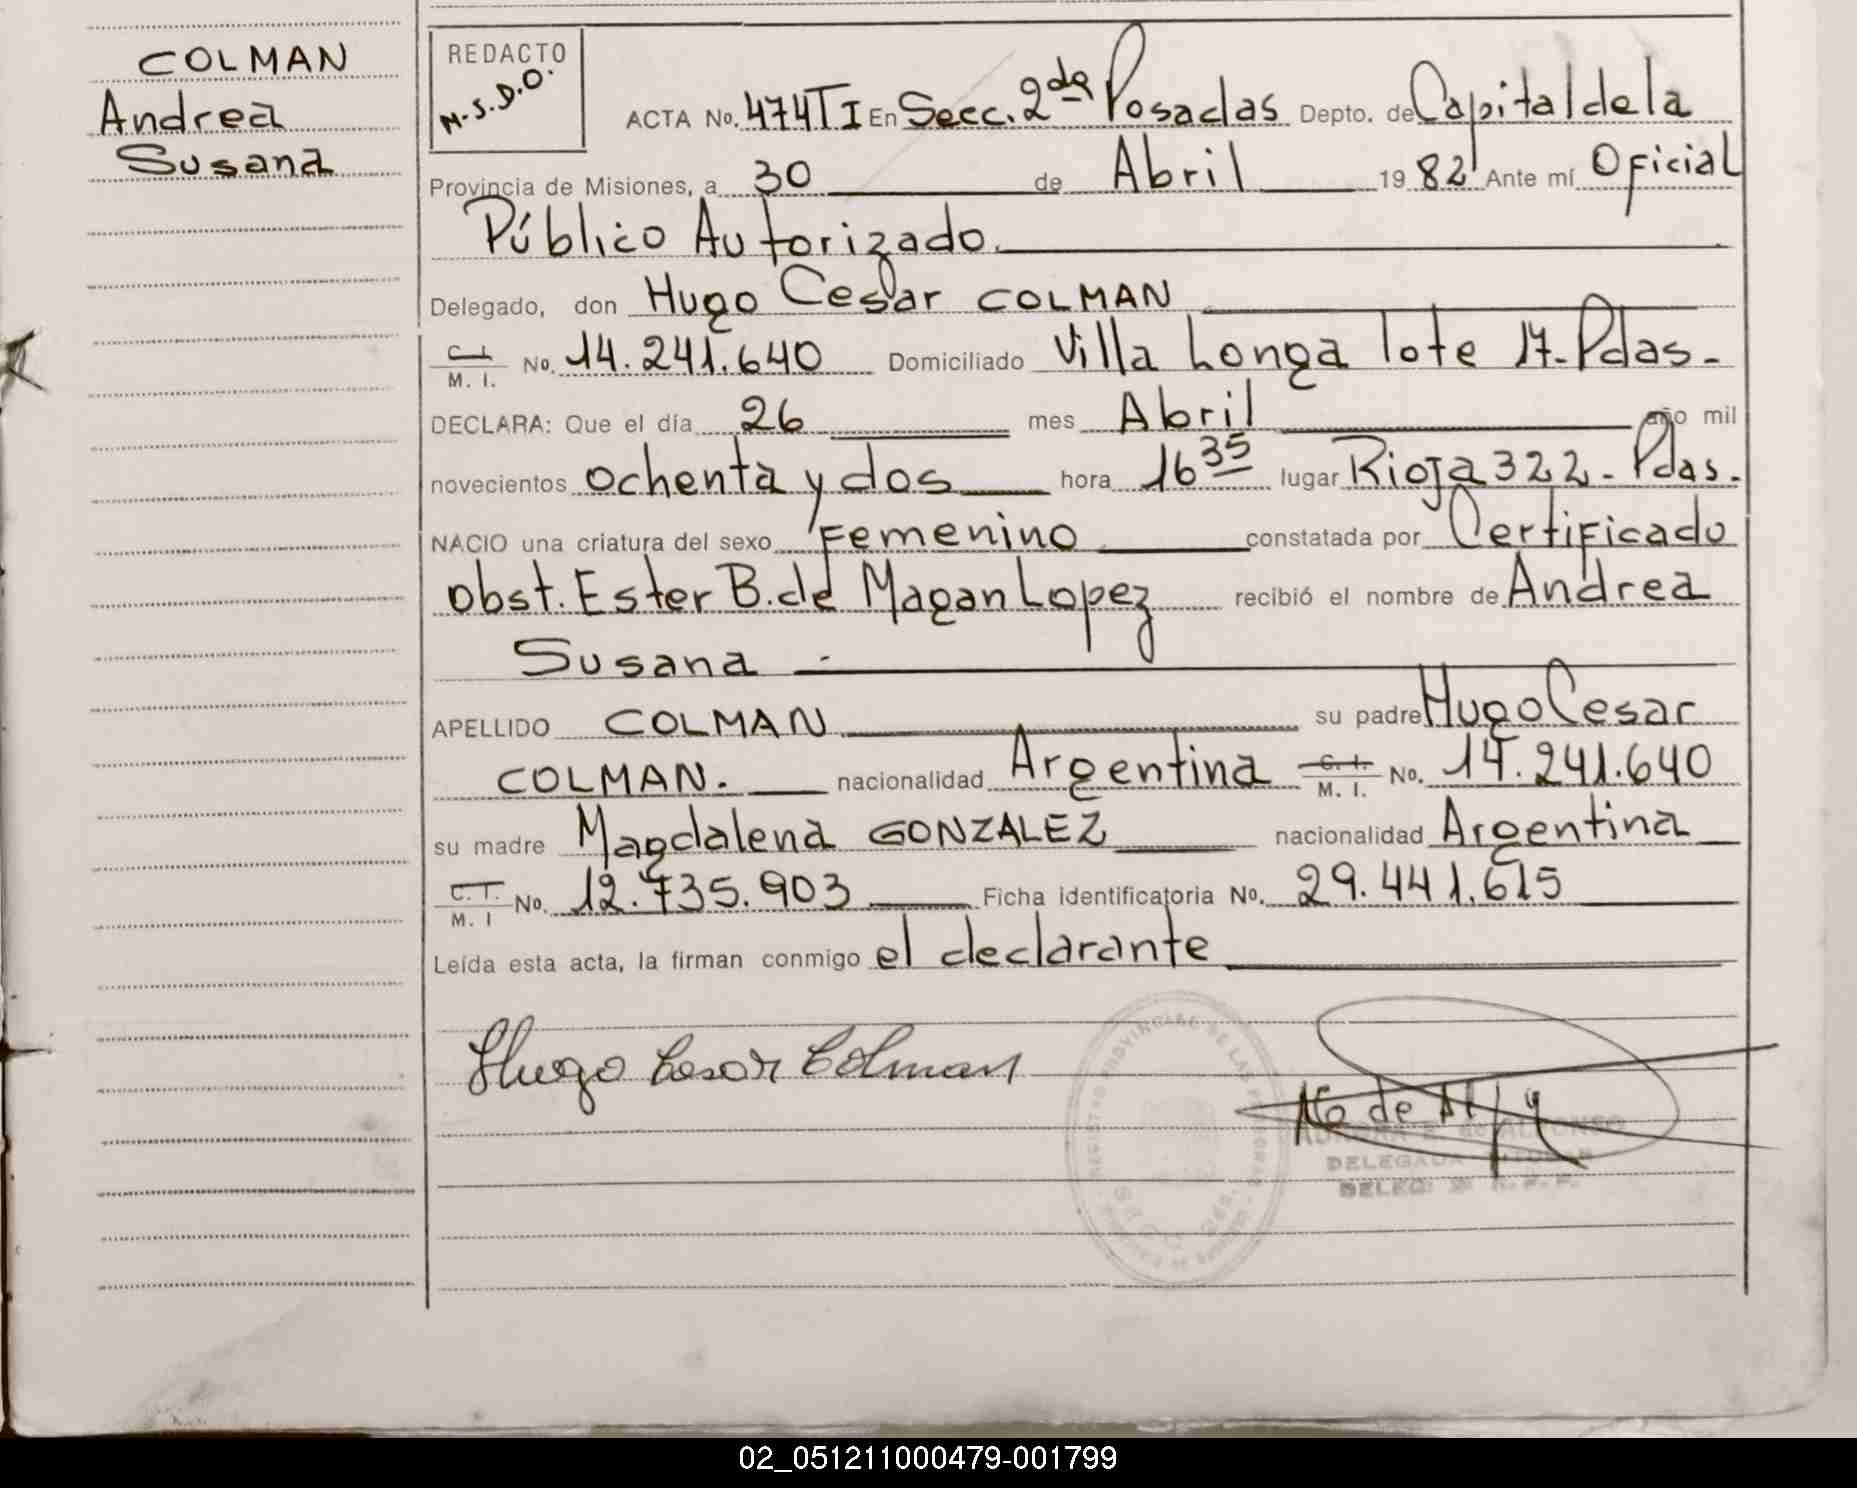 COLMAN
Andrea
Susana
REDACTO
M.S.D.O.
ACTA No. 474TI En Secc. 2da Posadas Depto. de Capital de la
Provincia de Misiones, a 30 de Abril 1982 Ante mí Oficial
Público Autorizado.
Delegado, don Hugo Cesar COLMAN
C.I. M. I. No. 14.241.640 Domiciliado Villa Longa lote 17-Pdas-
DECLARA: Que el día 26 mes Abril año mil
novecientos ochenta y dos hora 16 35 lugar Rioja 322-Pdas.
NACIO una criatura del sexo Femenino constatada por Certificado
obst. Ester B. de Magan Lopez recibió el nombre de Andrea
Susana -
APELLIDO COLMAN su padre Hugo Cesar
COLMAN. nacionalidad Argentina C.I. M. I. No. 14.241.640
su madre Magdalena GONZALEZ nacionalidad Argentina
C.I. M. I No. 12.735.903 Ficha identificatoria No. 29.441.615
Leída esta acta, la firman conmigo el declarante
Hugo Cesar Colman
REGISTRO PROVINCIAL DE LAS PERSONAS
DELEGADA TITULAR
02_051211000479-001799